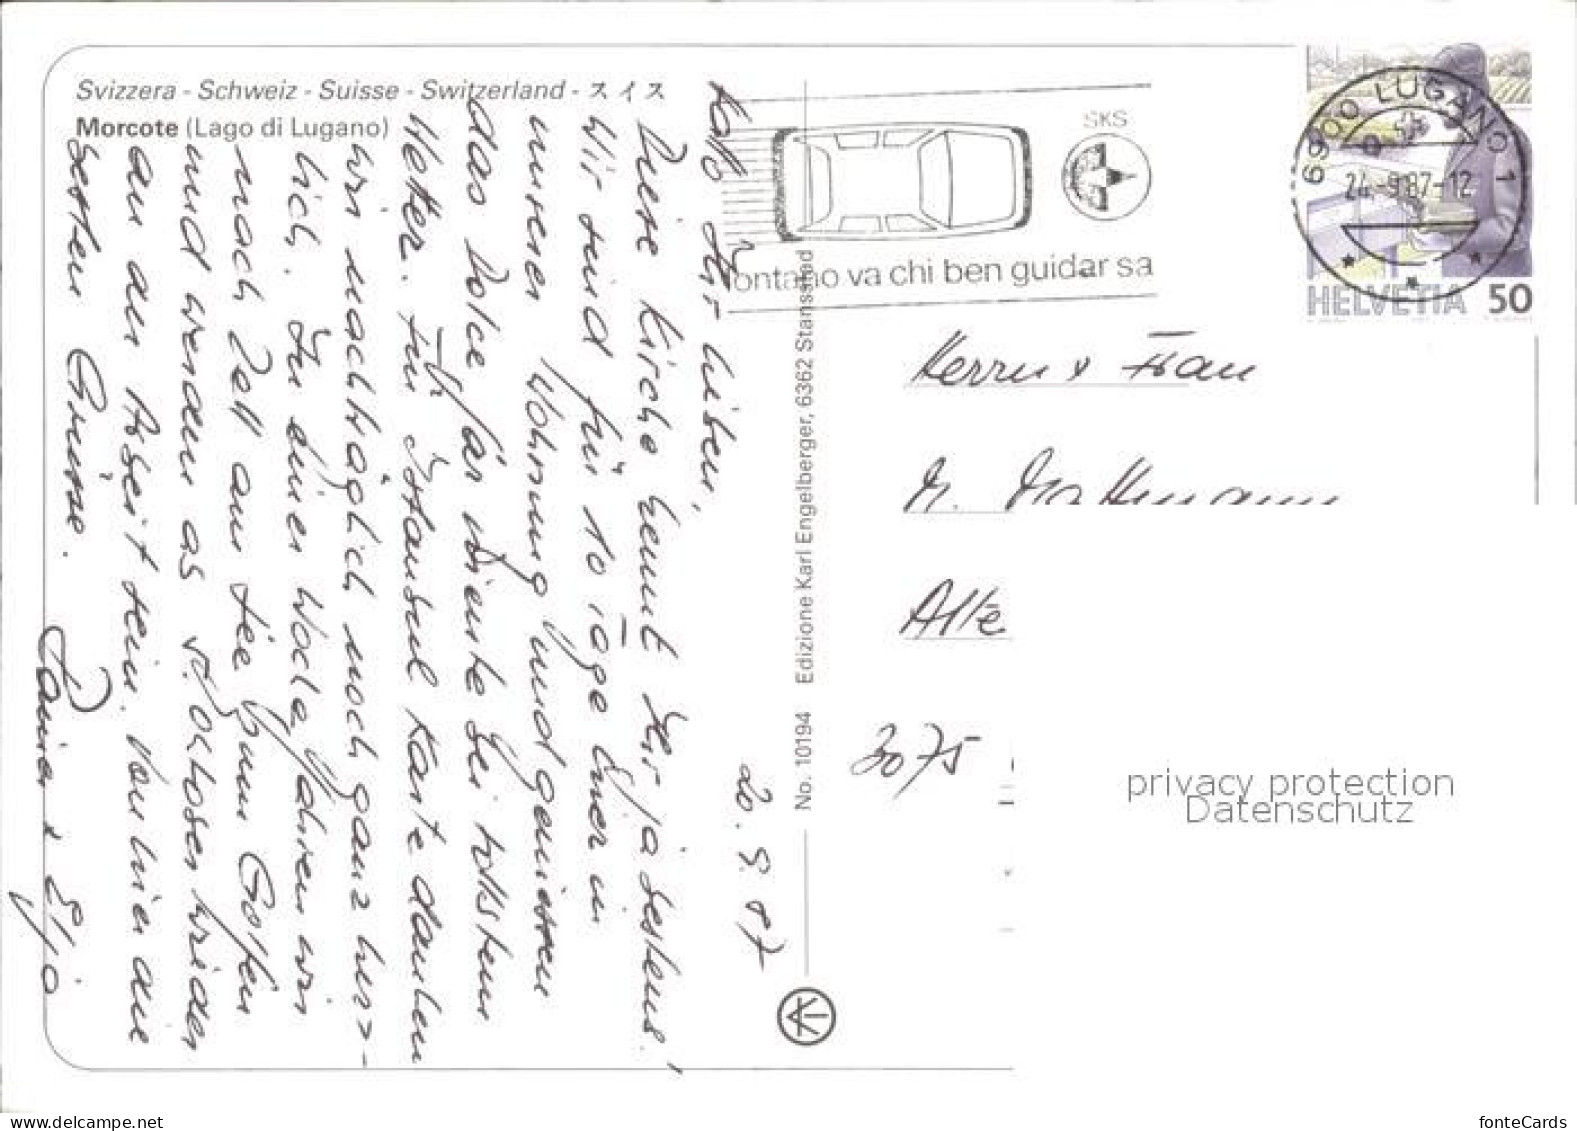 Svizzera - Schweiz - Suisse - Switzerland - スイス
Morcote (Lago di Lugano)
20. 9. 87
Ihr Lieben,
Diese Kirche kennt Ihr ja bestens!
Wir sind für 10 Tage hier in
unserer Wohnung und geniessen
das Dolce far niente bei
Wetter. Für Istanbul Karte danken
wir nachträglich noch ganz herz-
lich. In einer Woche fahren wir
nach Zell am See zum Golfen
und werden ab Oktober wieder
an der Arbeit sein. Von hier die
besten Grüsse.
No. 10194 Edizione Karl Engelberger, 6362 Stansstad
SKS
ontano va chi ben guidar sa
6900 LUGANO 1
24.-9.87-12
HELVETIA 50
Herrn & Frau
Alte
3075
privacy protection
Datenschutz
www.delcampe.net
fonteCards